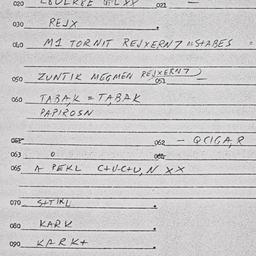 020 021
030 REJX
040 M1 TORNIT REJXERN7 = STABES =
050 ZUNTIK MEGMEN REJXERN7
051
060 TABAK = TABAK
PAPIROSN
061 062 - QCIGA,R
063 0 064
065 A PEKL C+U-C+U,N XX
070 S+TIKL
080 KARK
090 KARK+